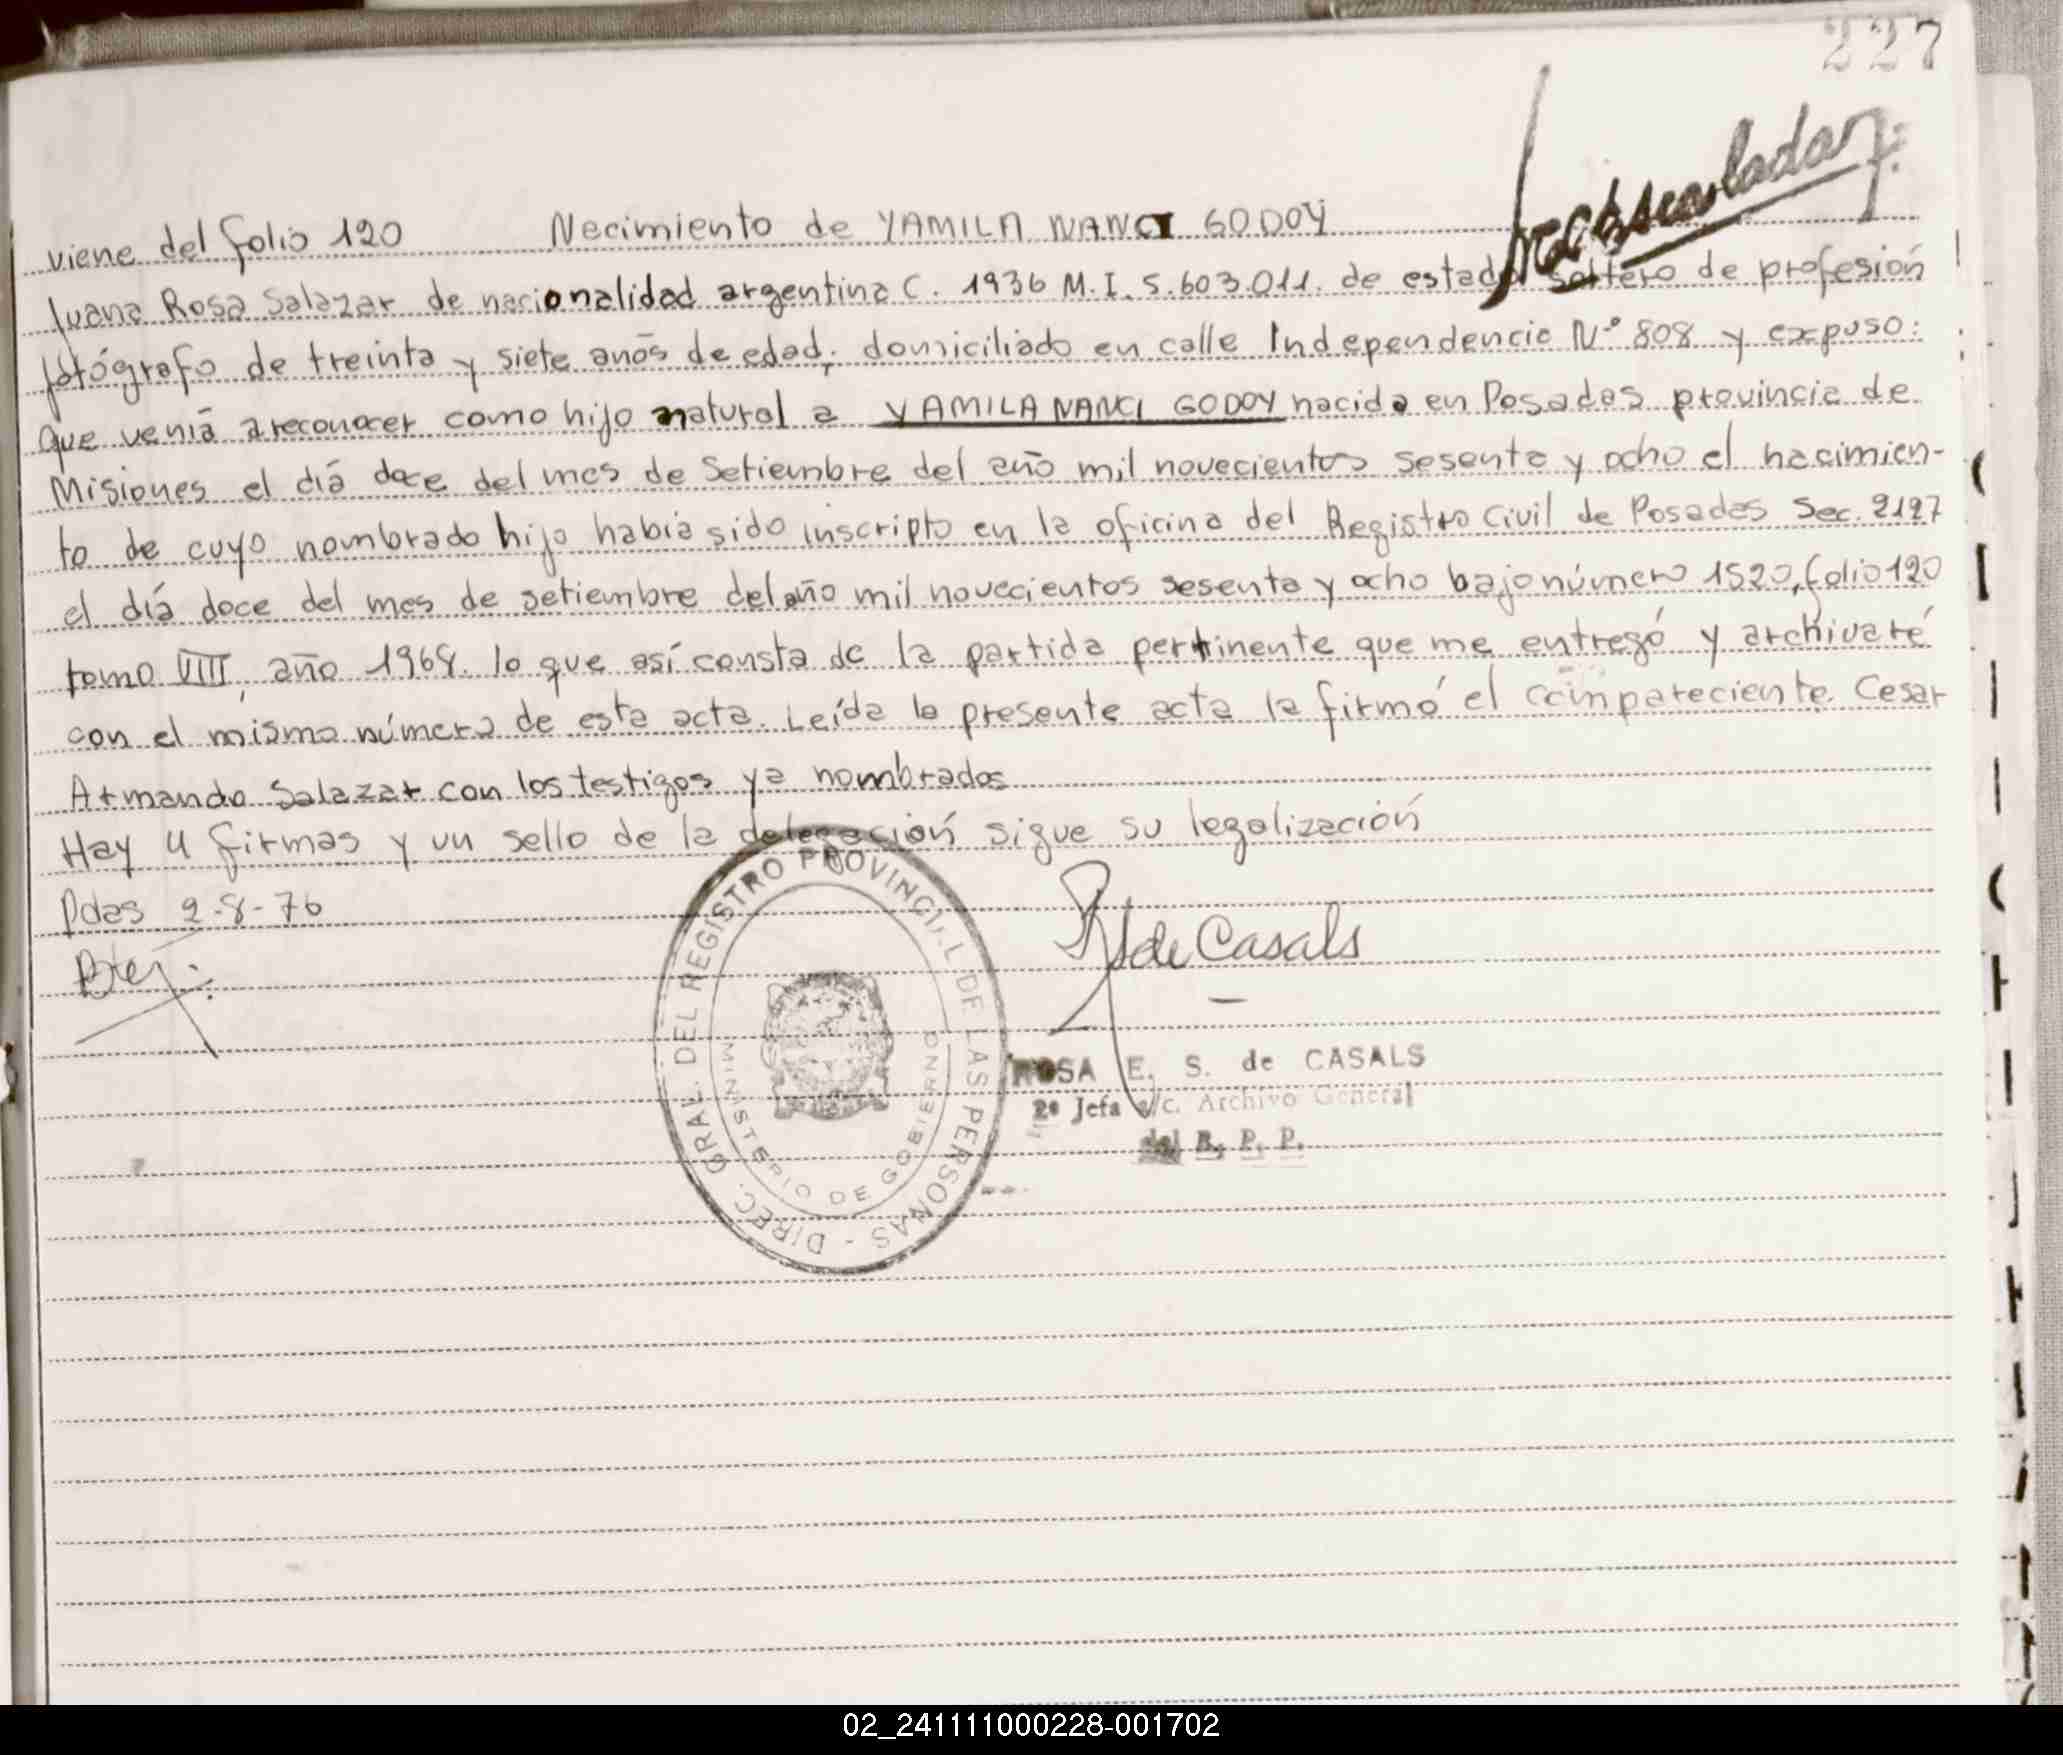 227
viene del folio 120 Necimiento de YAMILA NANCI GODOY
Juana Rosa Salazar de nacionalidad argentina C. 1936 M.I. 5.603.011. de estado soltero de profesión
fotógrafo de treinta y siete anõs de edad, domiciliado en calle Independencia Nº 808 y expuso:
Que veniá a reconocer como hijo natural a YAMILA NANCI GODOY nacida en Posadas provincia de
Misiones el diá doce del mes de Setiembre del año mil novecientos sesenta y ocho el nacimien-
to de cuyo nombrado hijo habia sido inscripto en la oficina del Registro Civil de Posadas Sec. 2127
el día doce del mes de setiembre del año mil novecientos sesenta y ocho bajo número 1520, folio 120
tomo VIII, año 1968. lo que así consta de la partida pertinente que me entregó y archivaré
con el mismo número de esta acta. Leída la presente acta la firmó el compareciente. Cesar
Armando Salazar con los testigos ya nombrados
Hay 4 firmas y un sello de la delegación sigue su legalización
Pdas 2-8-76
de Casals
DIREC. GRAL. DEL REGISTRO PROVINCIAL DE LAS PERSONAS -
MINISTERIO DE GOBIERNO
ROSA E. S. de CASALS
2ª Jefa a/c. Archivo General
del R. P. P.
02_241111000228-001702